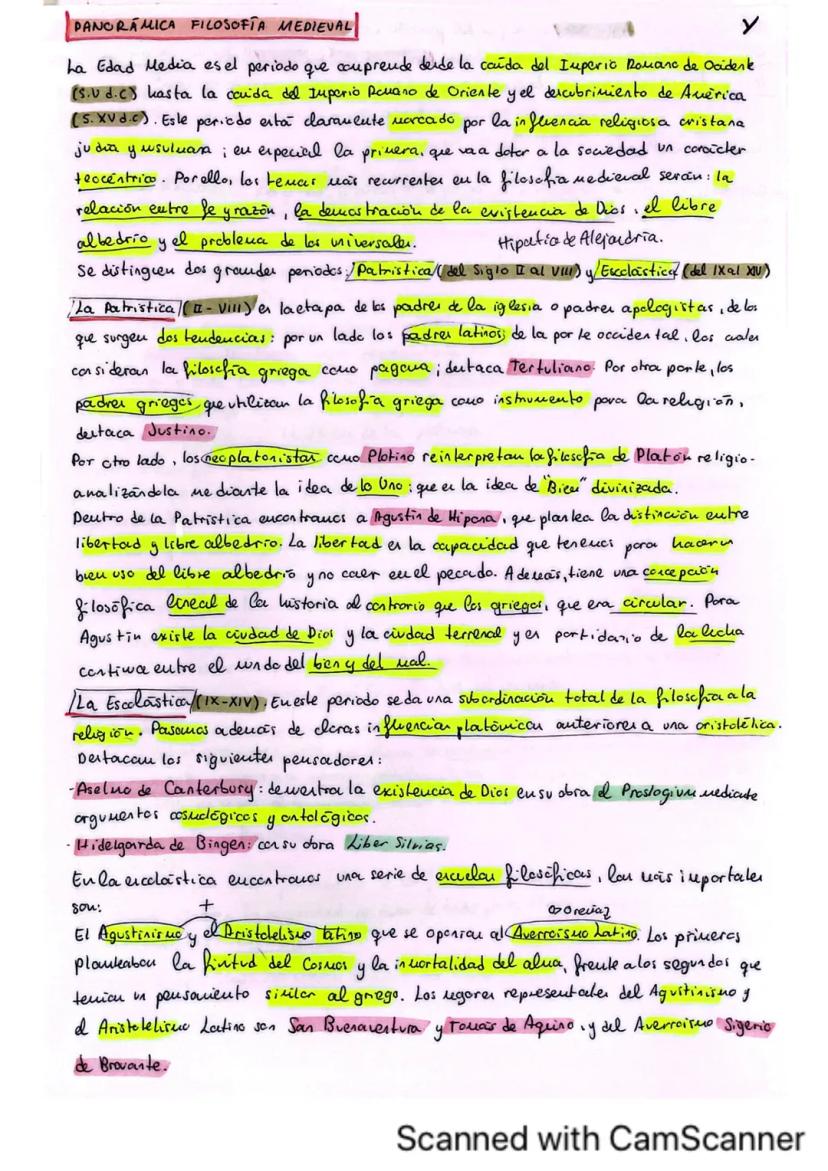 PANORÁMICA FILOSOFÍA MEDIEVAL
La Edad Media es el periodo que comprende desde la caída del Imperio Romano de Occidente
(S.V d.C) hasta la caída del Imperio Romano de Oriente y el descubrimiento de América
(S. XV d.C). Este periodo está claramente marcado por la influencia religiosa cristana
judía y musulmana; en especial la primera, que va a dotar a la sociedad un carácter
teocéntrico. Por ello, los temas más recurrentes en la filosofía medieval serán: la
relación entre fe y razón, la demostración de la existencia de Dios, el libre
albedrío y el problema de los universales.
Hipatia de Alejandría.
Se distinguen dos grandes periodos: Patrística (del Siglo II al VIII) y Escolástica (del IX al XIV)
La Patrística (II - VIII) es la etapa de los padres de la iglesia o padres apologistas, de los
que surgen dos tendencias: por un lado los padres latinos de la parte occidental, los cuales
consideran la filosofía griega como pagana; destaca Tertuliano. Por otra parte, los
padres griegos que utilizan la filosofía griega como instrumento para la religión,
destaca Justino.
Por otro lado, los neoplatonistas como Plotino reinterpretan la filosofía de Platón religio-
analizándola mediante la idea de lo Uno; que es la idea de "Bien" divinizada.
Dentro de la Patrística encontramos a Agustín de Hipona, que plantea la distinción entre
libertad y libre albedrío. La libertad es la capacidad que tenemos para hacer un
bien uso del libre albedrío y no caer en el pecado. Además, tiene una concepción
filosófica lineal de la historia al contrario que los griegos, que era circular. Para
Agustín existe la ciudad de Dios y la ciudad terrenal y es partidario de la lucha
continua entre el mundo del bien y del mal.
La Escolástica (IX-XIV). En este periodo se da una subordinación total de la filosofía a la
religión. Pasamos además de claras influencias platónicas anteriores a una aristotélica.
Destacan los siguientes pensadores:
- Aselmo de Canterbury: demuestra la existencia de Dios en su obra el Proslogium mediante
argumentos cosmológicos y ontológicos.
- Hidelgarda de Bingen: con su obra Liber Silvias.
En la escolástica encontramos una serie de escuelas filosóficas, las más importales
son:
+
El Agustinismo y el Aristotelismo latino que se oponían al Averroísmo Latino. Los primeros
planteaban la finitud del Cosmos y la inmortalidad del alma, frente a los segundos que
tenían un pensamiento similar al griego. Los mejores representates del Agustinismo y
el Aristotelismo Latino son San Buenaventura y Tomás de Aquino, y del Averroísmo Sigerio
de Bravante.
Scanned with CamScanner